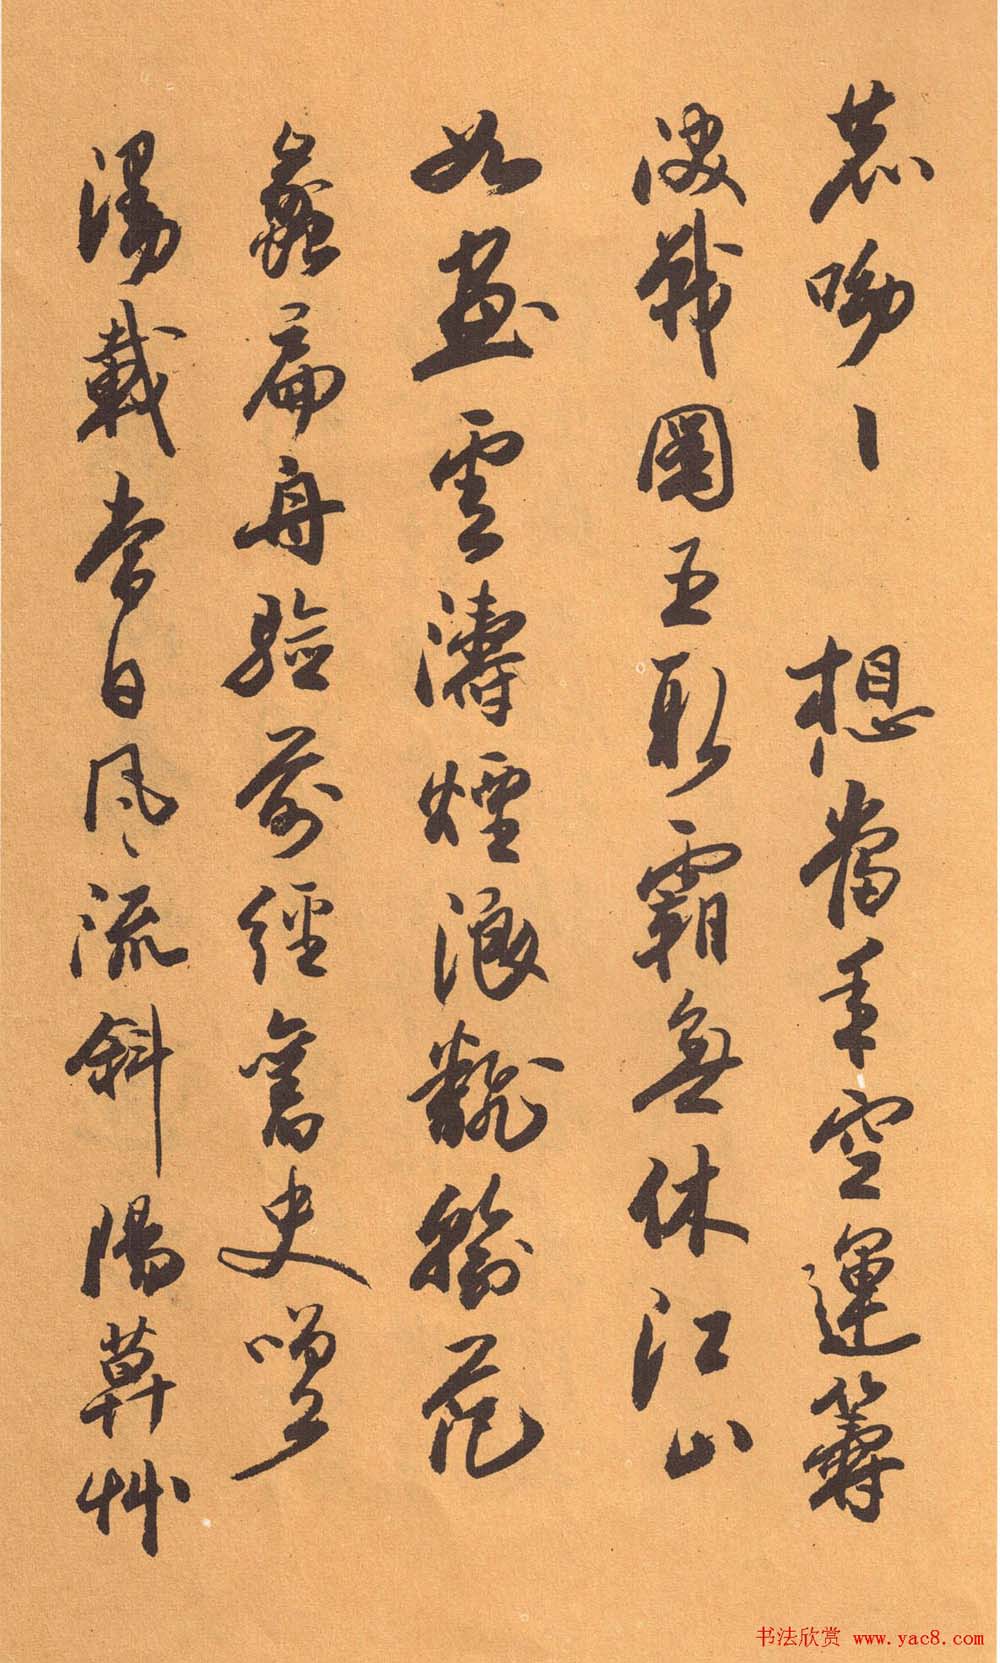 鹿呦々想當年空運籌
決戰圖王取霸無休江山
如畫雲濤煙浪翻輸范
蠡扁舟驗前經舊史嗟
漫載當日風流斜陽暮艸
书法欣赏 www.yac8.com